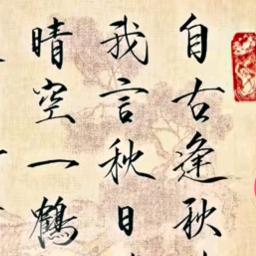 自古逢秋
我言秋日
晴空一鶴